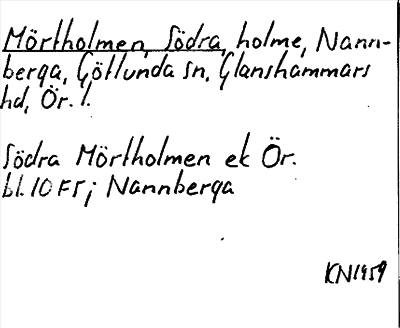 Mörtholmen, Södra, holme, Nann-
berga, Götlunda sn, Glanshammars
hd, Ör. l.
Södra Mörtholmen ek Ör.
bl. 10 F5; Nannberga
KN1959